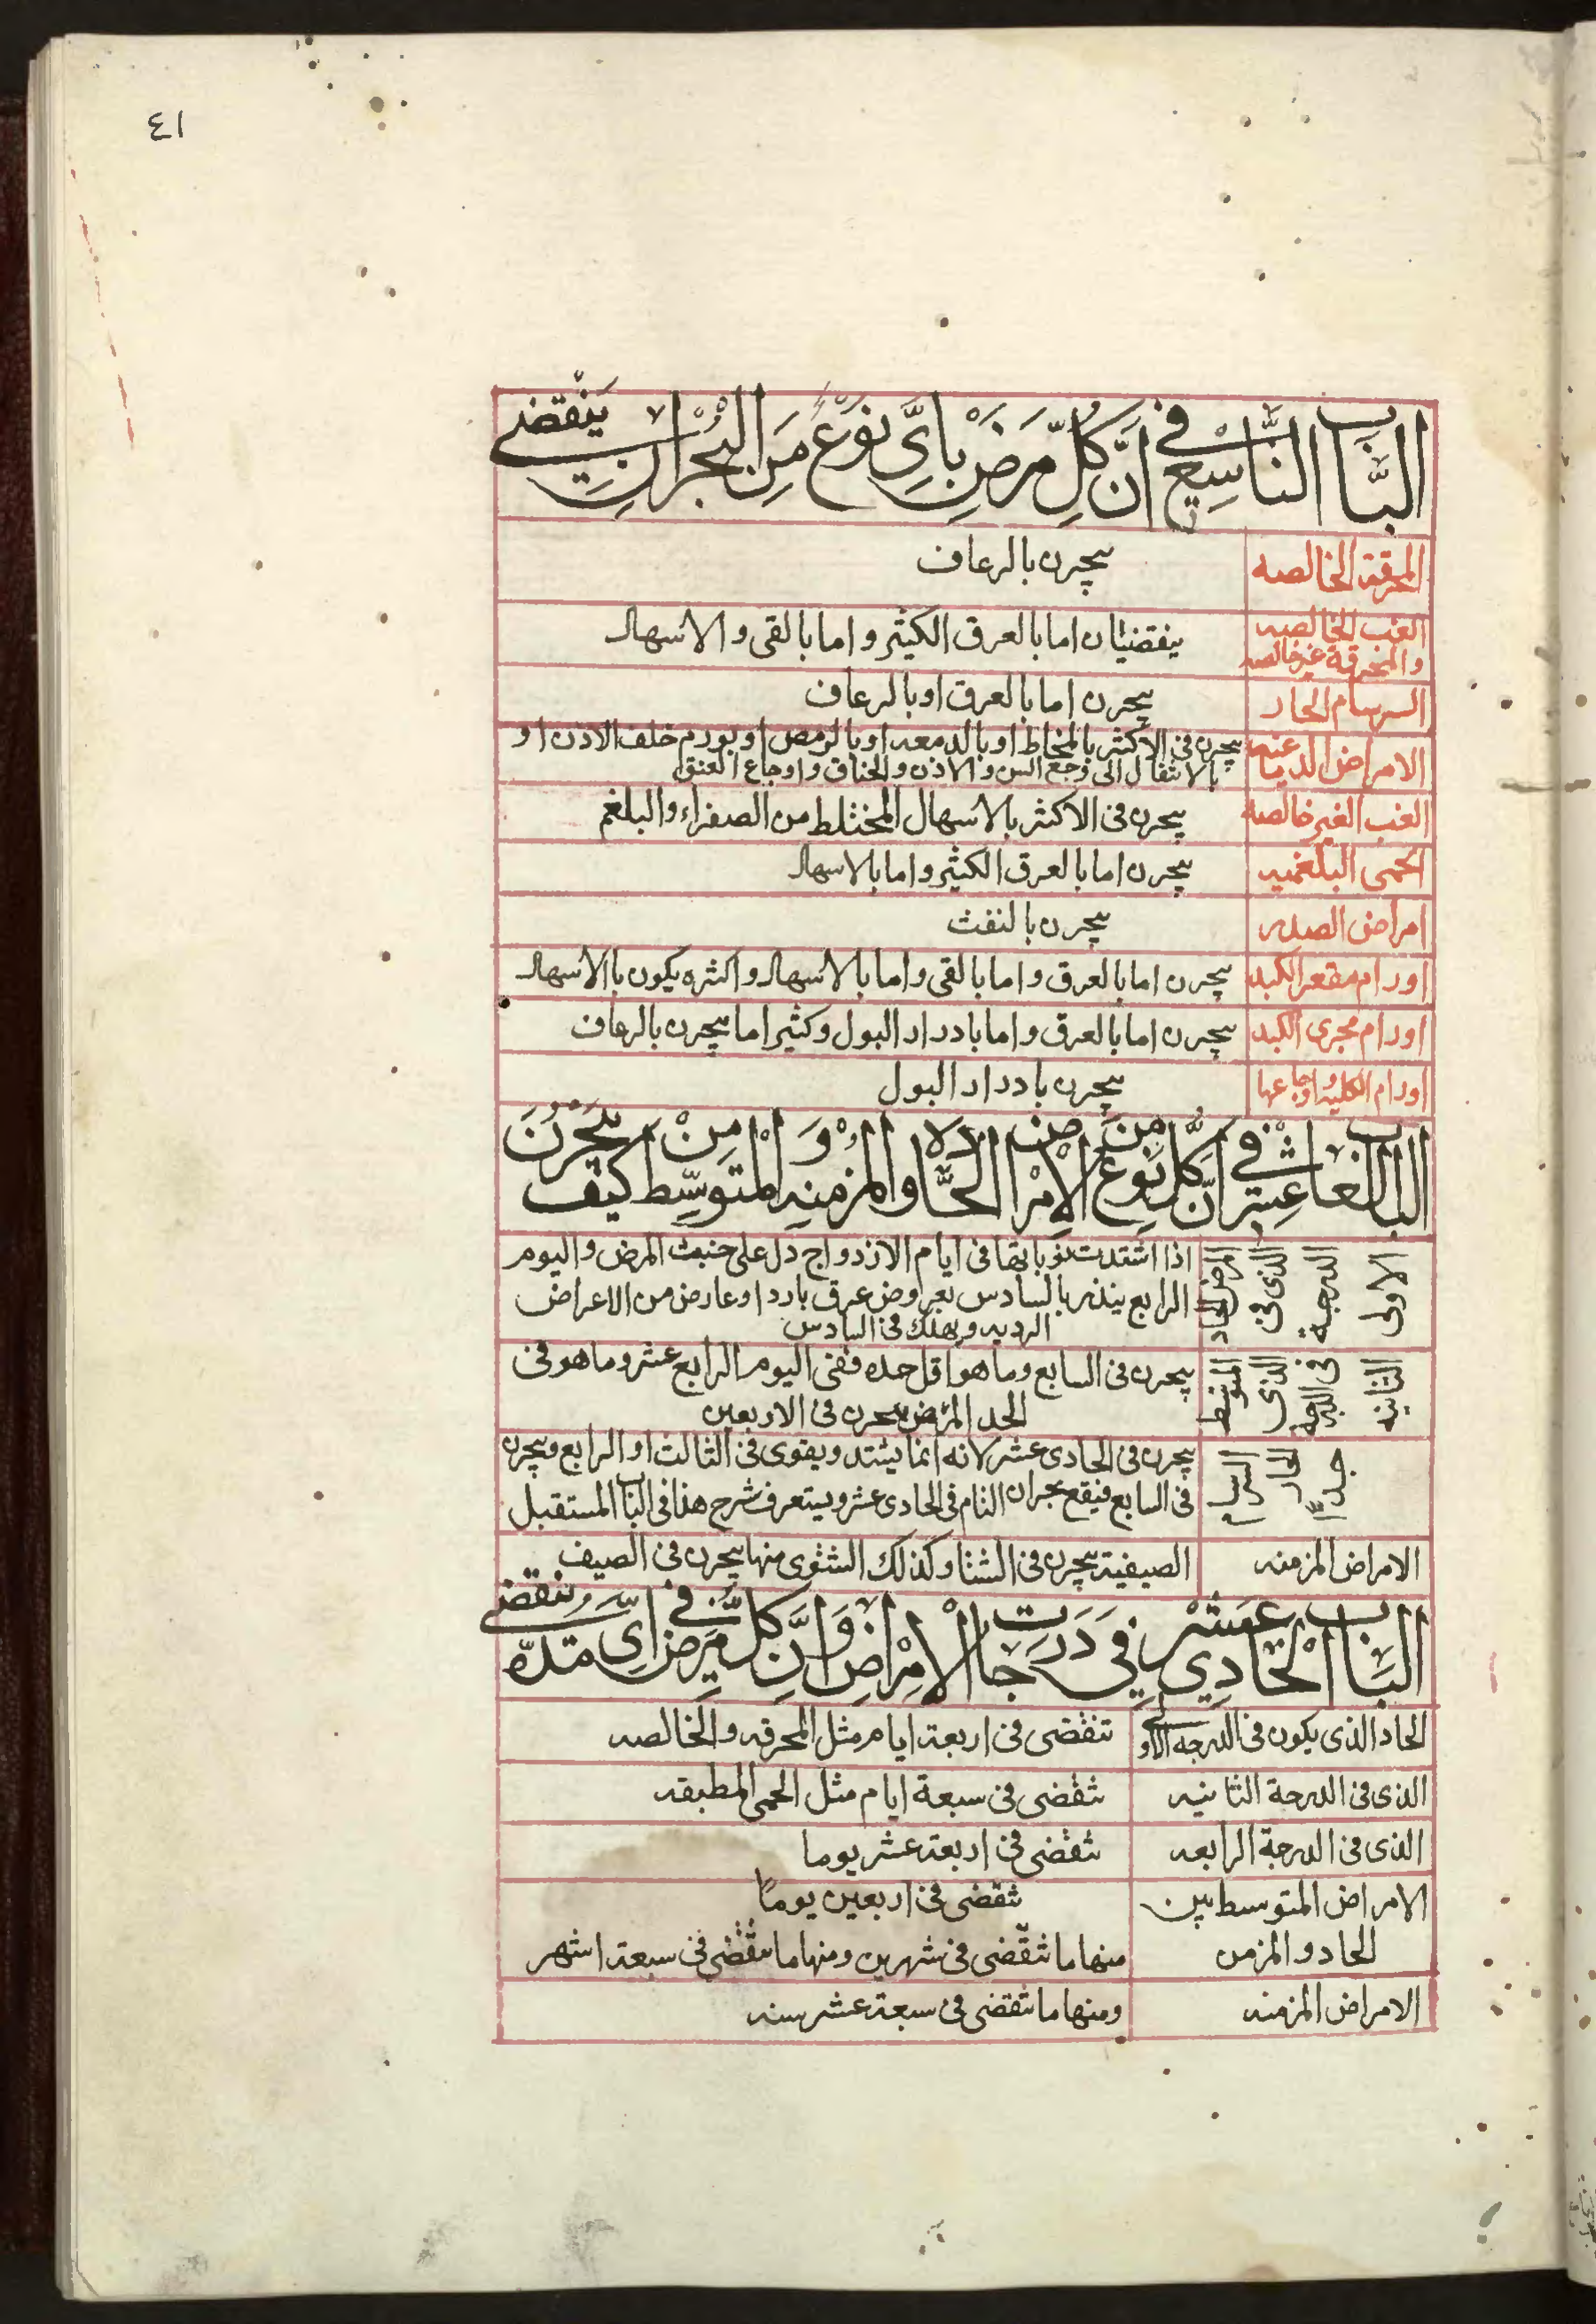 ٤١
الباب التاسع في ان كل مرض باي نوع من البحران ينقضي
المحرقة الخالصه يبحرن بالرعاف
الغب الخالصه والمحرقة غير خالصه ينقضيان اما بالعرق الكثير و اما بالقى و الاسهال
السرسام الحار يبحرن اما بالعرق او بالرعاف
الامراض الدماغيه يبحرن فى الاكثر بالمخاط او بالدمعه او بالرمص او بورم خلف الاذن او
بالانتقال الى وجع السن و الاذن و الخناق و اوجاع العنق
الغب الغير خالصه يبحرن فى الاكثر بالاسهال المختلط من الصفراء و البلغم
الحمى البلغميه يبحرن اما بالعرق الكثير و اما بالاسهال
امراض الصدر يبحرن بالنفث
اورام مقعر الكبد يبحرن اما بالعرق و اما بالقى و اما بالاسهال و اكثره يكون باالاسهال
اورام مجرى الكبد يبحرن اما بالعرق و اما بادرار البول و كثير اما يبحرن بالرعاف
اورام الكليه و اوجاعها يبحرن بادرار البول
الباب العاشر في ان كل نوع من الامراض الحاده و المزمنه و المتوسط من كيف يبحرن
المرض الحاد الذى فى الدرجة الاولى اذا اشتدت نوباتها فى ايام الازدواج دل على خبث المرض و اليوم
الرابع ينذر بالسادس بعروض عرق بارد او عارض من الاعراض
الرديه و يهلك فى السادس
المتوسط الذى فى الدرجة الثانيه يبحرن فى السابع و ما هو اقل حده ففى اليوم الرابع عشر و ما هو فى
الحد المرض يبحرن فى الاربعين
السرسام الحار جدًا يبحرن فى الحادى عشر لانه انما يشتد و يقوى فى الثالث او الرابع و يبحرن
فى السابع فيقع بحران التام فى الحادى عشر و يستعرف شرح هذا فى الباب المستقبل
الامراض المزمنه الصيفية يبحرن فى الشتا و كذلك الشتوى منها يبحرن فى الصيف
الباب الحادي عشر في درجات الامراض و ان كل مرض في اي مدّه ينقضي
الحاد الذى يكون فى الدرجه الاولى تنقضى فى اربعة ايام مثل المحرقه و الخالصه
الذى فى الدرجة الثانيه تنقضى فى سبعة ايام مثل الحمى المطبقه
الذى فى الدرجة الرابعه تنقضى فى اربعة عشر يوما
الامراض المتوسط بين تنقضى فى اربعين يومًا
الحاد و المزمن منها ما تنقضى فى شهرين و منها ما تنقضى فى سبعة اشهر
الامراض المزمنه و منها ما تنقضى فى سبعة عشر سنه